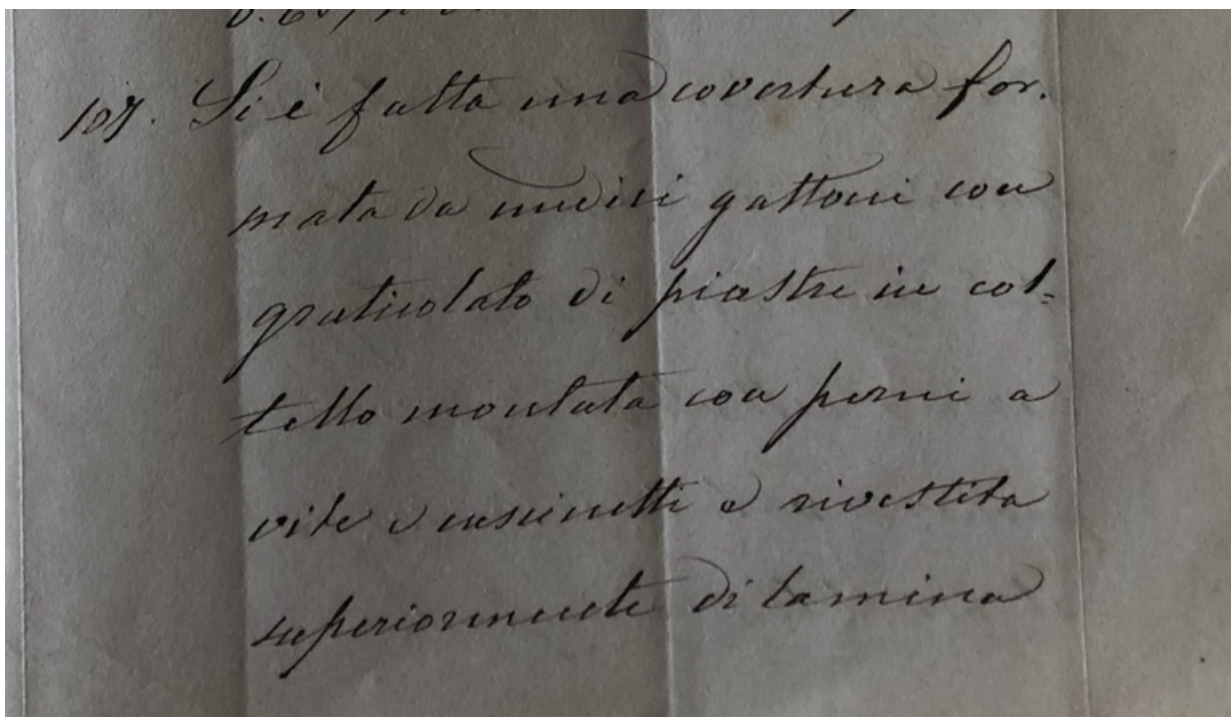 107. Si è fatta una covertura for-
mata da undici gattoni con
graticolato di piastre in col=
tello montata con perni a
vite e cuscinetti e rivestita
superiormente di lamina